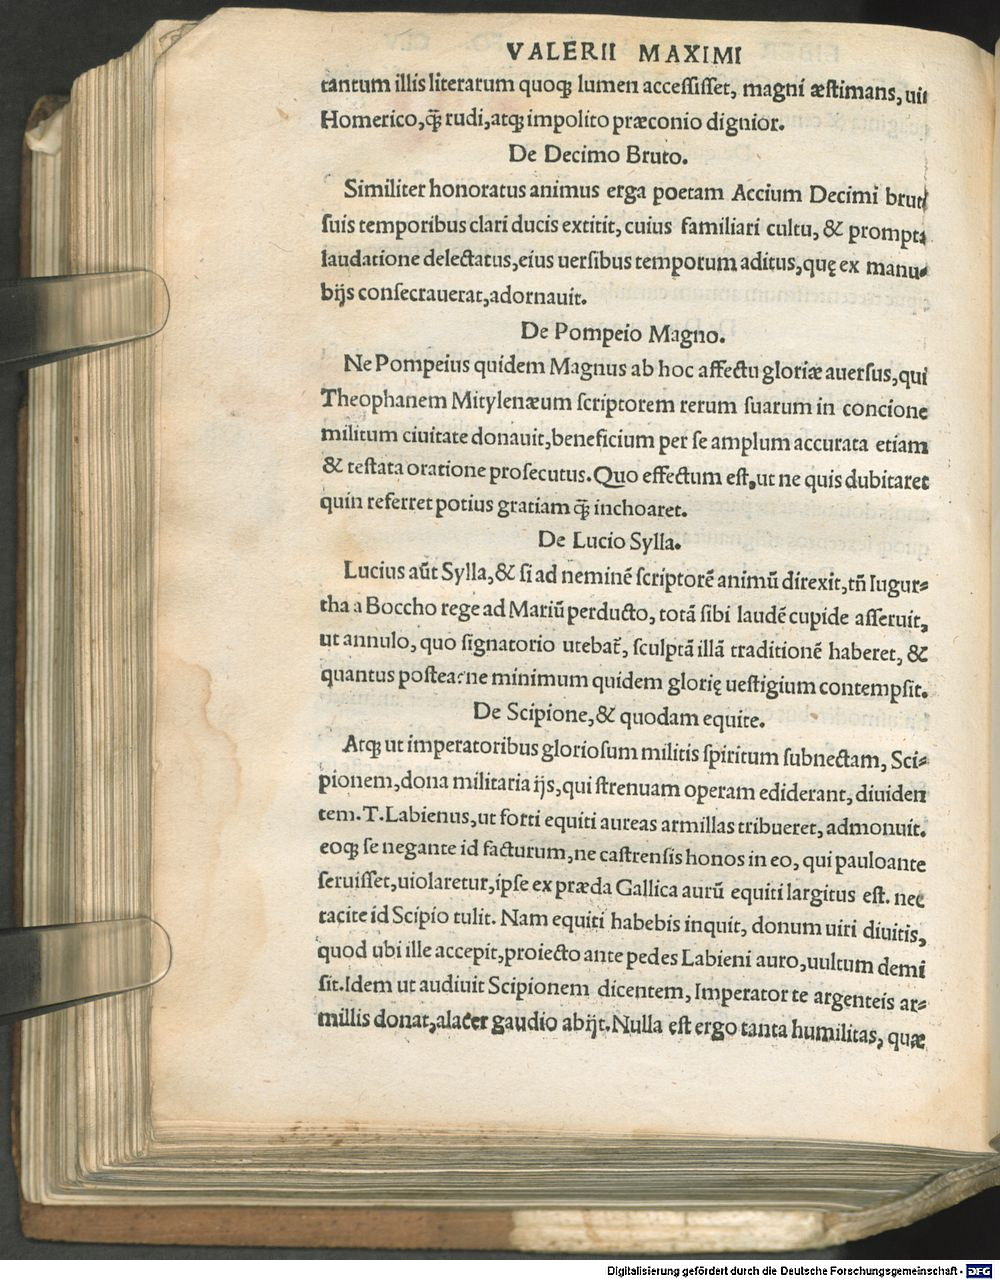 VALERII MAXIMI
tantum illis literarum quoqꝫ lumen accessisset, magni æstimans, uir
Homerico, q̃ rudi, atqꝫ impolito præconio dignior.
De Decimo Bruto.
Similiter honoratus animus erga poetam Accium Decimi bruti
suis temporibus clari ducis extitit, cuius familiari cultu, & prompta
laudatione delectatus, eius uersibus temporum aditus, quę ex manu-
bijs consecrauerat, adornauit.
De Pompeio Magno.
Ne Pompeius quidem Magnus ab hoc affectu gloriæ auersus, qui
Theophanem Mitylenæum scriptorem rerum suarum in concione
militum ciuitate donauit, beneficium per se amplum accurata etiam
& testata oratione prosecutus. Quo effectum est, ut ne quis dubitaret
quin referret potius gratiam q̃ inchoaret.
De Lucio Sylla.
Lucius aũt Sylla, & si ad neminẽ scriptorẽ animũ direxit, tñ Iugur-
tha a Boccho rege ad Mariũ perducto, totã sibi laudẽ cupide asseruit,
ut annulo, quo signatorio utebat᷑, sculptã illã traditionẽ haberet, &
quantus postea: ne minimum quidem glorię uestigium contempsit.
De Scipione, & quodam equite.
Atqꝫ ut imperatoribus gloriosum militis spiritum subnectam, Sci-
pionem, dona militaria ijs, qui strenuam operam ediderant, diuiden
tem. T. Labienus, ut forti equiti aureas armillas tribueret, admonuit.
eoqꝫ se negante id facturum, ne castrensis honos in eo, qui pauloante
seruisset, uiolaretur, ipse ex præda Gallica aurũ equiti largitus est. nec
tacite id Scipio tulit. Nam equiti habebis inquit, donum uiri diuitis,
quod ubi ille accepit, proiecto ante pedes Labieni auro, uultum demi
sit. Idem ut audiuit Scipionem dicentem, Imperator te argenteis ar-
millis donat, alacer gaudio abijt. Nulla est ergo tanta humilitas, quæ
Digitalisierung gefördert durch die Deutsche Forschungsgemeinschaft - DFG